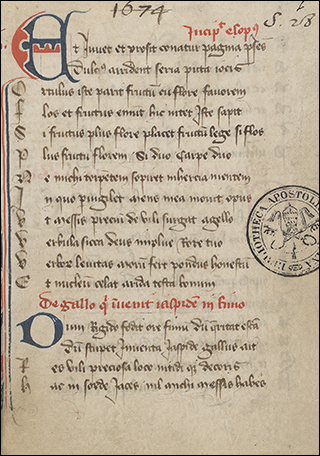 1674
S. 28
Incip̄t esop⁹
Ut Juvet et prosit conatur pagina pn̄s
Dulci⁹ arrident seria picta iocis
Ortulus iste parit fructū cū flore favorem
Flos et fructus emūt hic nitet Iste sapit
Si fructus plus flore placet fructū lege si flos
Plus fructu florem Si duo Carpe duo
Ne michi torpētem sopiret inhercia mentem
In quo pingilet mens mea movit opus
Ut messis preciū de vili surgat agello
Verbula sicca deus implue rore tuo
Verboꝝ levitas moꝝ fert pondus honestū
Et nucleū celat arida testa bonum
De gallo q̄ īvenit iaspidē in fimo
Dum Rigido fodit ore fimū dū q̄ritat escā
Dū stupet Inventa Jaspide gallus ait
Res vili preciosa loco nitidiq̄ decoris
Hac in sorde Jaces nil michi messis habes
BIBLIOTHECA APOSTOLICA